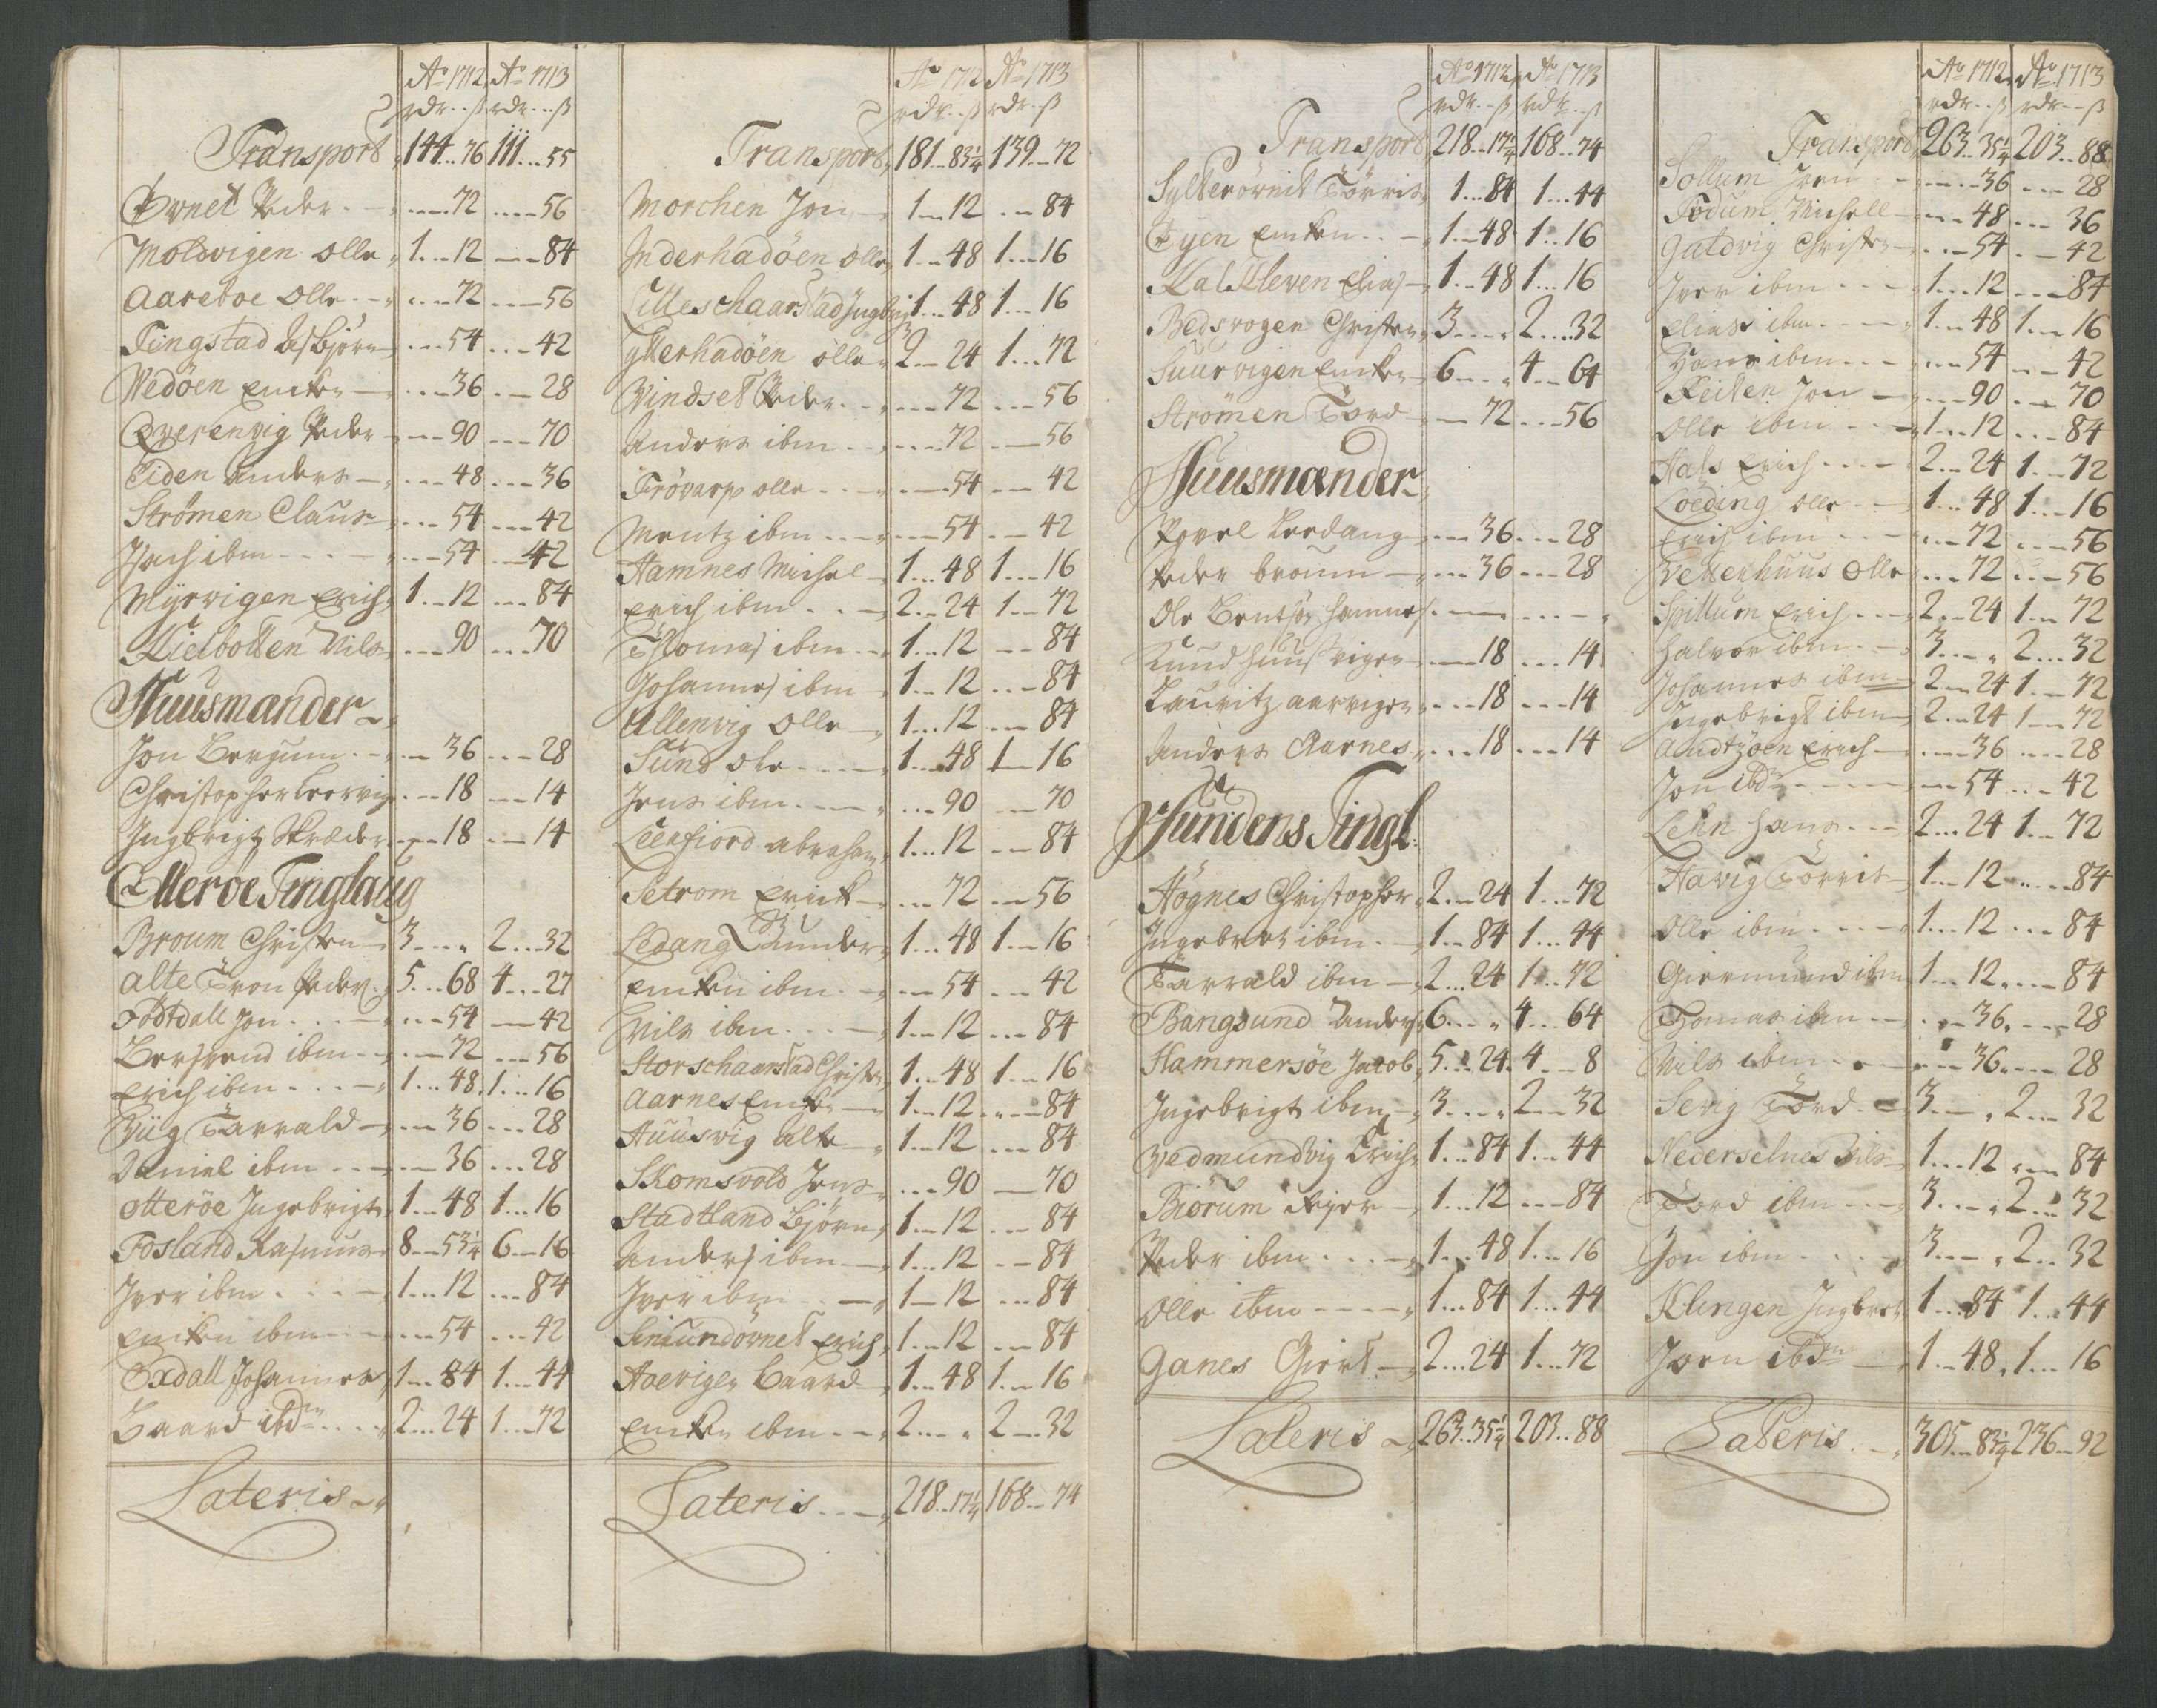 Ao 1712 Ao 1713
rdr...ß rdr...ß
Transport 144..76 111...55
Ørnet Peder ....72 ....56
Moldvigen Olle 1...12 ....84
Aareboe Olle ....72 ....56
Tingstad Asbjørn ....54 ....42
Wedöen Encken ....36 ....28
Qverenvig Peder ....90 ....70
Eiden Anders ....48 ....36
Strömen Claus ....54 ....42
Isach ibm ....54 ....42
Myrvigen Erich 1...12 ....84
Kielbotten Nils ....90 ....70
Huusmænder
Jon Bergum ....36 ....28
Christopher Leervig ....18 ....14
Ingbrigt Skræder ....18 ....14
Otterøe Tinglaug
Broum Christen 3....,, 2...32
Alte Tron Peder 5...68 4...27
Födtdall Jon ....54 ....42
Berswend ibm ....72 ....56
Erich ibm 1...48 1...16
Viig Tarrald ....36 ....28
Daniel ibm ....36 ....28
Otteröe Ingebrigt 1...48 1...16
Fosland Rasmus 8...53¼ 6...16
Iver ibm 1...12 ....84
Encken ibm ....54 ....42
Oxdall Johannes 1...84 1...44
Baard ibdm 2...24 1...72
Lateris
Ao 1712 Ao 1713
rdr...ß rdr...ß
Transport 181...83¼ 139...72
Morchen Jon 1...12 ....84
Inderhadöen Olle 1...48 1...16
Lilleschaarstad Ingbrigt 1...48 1...16
Ytterhadöen Olle 2...24 1...72
Vindset Peder ....72 ....56
Anders ibm ....72 ....56
Frövarp Olle ....54 ....42
Mentz ibm ....54 ....42
Hamnes Michel 1...48 1...16
Erich ibm 2...24 1...72
Thomas ibm 1...12 ....84
Johannes ibm 1...12 ....84
Allenvig Olle 1...12 ....84
Sund Ole 1...48 1...16
Jens ibm ....90 ....70
Leerfiord Abraham 1...12 ....84
Setrom Erick ....72 ....56
Ledang Gunder 1...48 1...16
Encken ibm ....54 ....42
Nils ibm 1...12 ....84
Storschaarstad Christen 1...48 1...16
Aarnes Encken 1...12 ....84
Huusvig Alte 1...12 ....84
Skomsvold Jens ....90 ....70
Stadtland Bjørn 1...12 ....84
Anders ibm 1...12 ....84
Iver ibm 1...12 ....84
Erich 1...12 ....84
Baard 1...48 1...16
Encken ibm 2....,, 2...32
Lateris 218...17¼ 168...74
Ao 1712 Ao 1713
rdr...ß rdr...ß
Transport 218...17¼ 168...74
Sylterörnit Törris 1...84 1...44
Öyen Encken 1...48 1...16
Kalkleven Elias 1...48 1...16
Bedsvogen Christen 3....,, 2...32
Suurvigen Encken 6....,, 4...64
Strömen Tord ....72 ....56
Huusmænder
Povel Leedang ....36 ....28
Peder broum ....36 ....28
Ole Bentsön hamnes
Knud huusvigen ....18 ....14
Lauritz aarvigen ....18 ....14
Anders Aarnes ....18 ....14
Hundens Tingl:
Högnes Christopher 2...24 1...72
Ingebret ibm 1...84 1...44
Tarrald ibm 2...24 1...72
Bangsund Anders 6....,, 4...64
Hammersöe Jacob 5...24 4...8
Ingebrigt ibm 3....,, 2...32
Vedmundvig Erich 1...84 1...44
Biörum 1...12 ....84
Peder ibm 1...48 1...16
Olle ibm 1...84 1...44
Ganes Giert 2...24 1...72
Lateris 263...35¼ 203...88
Ao 1712 Ao 1713
rdr...ß rdr...ß
Transport 263...35¼ 203...88
Sollum Joen ....36 ....28
Födum Michell ....48 ....36
Guldvig Christen ....54 ....42
Iver ibm 1...12 ....84
Elias ibm 1...48 1...16
Hans ibm ....54 ....42
Reiten Jon ....90 ....70
Olle ibm 1...12 ....84
Hals Erich 2...24 1...72
Löeding Olle 1...48 1...16
Erich ibm ....72 ....56
Vetterhuus Olle ....72 ....56
Spillum Erich 2...24 1...72
Halvor ibm 3....,, 2...32
Johannes ibm 2...24 1...72
Ingebrigt ibm 2...24 1...72
Erich ....36 ....28
Jon ibdm ....54 ....42
Lehn Hans 2...24 1...72
Havig Törris 1...12 ....84
Olle ibm 1...12 ....84
Giermund ibm 1...12 ....84
Thomas ibm ....36 ....28
Nils ibm ....36 ....28
Sevig Tord 3....,, 2...32
Nederselnes Nils 1...12 ....84
Tord ibm 3....,, 2...32
Jon ibm 3....,, 2...32
Klingen Ingbret 1...84 1...44
Joen ibdm 1...48 1...16
Lateris 305...83¼ 236...92